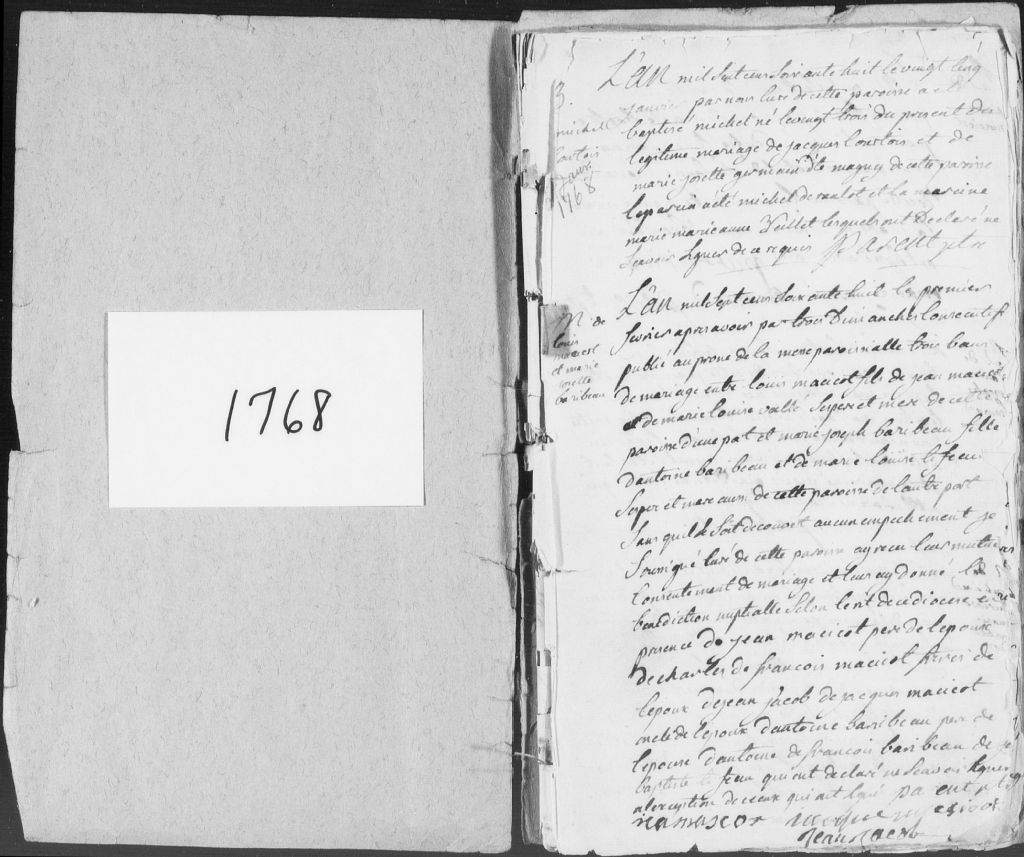 1768
3.
michel
Courtois
Janv.
1768
L'an mil sept cens soixante huit le vingt cinq
janvier par nous Cure de cette paroisse a eté
baptisé michel né le vingt trois du present du
legitime mariage de jacques Courtois et de
marie josette germain dit magny de cette paroisse
le parain a eté michel et la maraine
marie marieanne lesquels ont declaré ne
sçavoir signer de ce requis Parent ptre
M. de
louis
macicot
et marie
josette
baribeau
L'an mil sept cens soixante huit le premier
fevrier apres avoir par trois dimanches consecutifs
publié au prone de la messe paroissialle trois bans
de mariage entre louis macicot fils de jean macicot
et de marie louise vallé ses pere et mere de cette
paroisse d'une pat et marie joseph baribeau fille
dantoine baribeau et de marie louise lefeau
ses per et mere aussi de cette paroisse de lautre part
sans quil se soit decouvert aucun empechement je
soussigné Cure de cette paroisse ay recu leur mutuel
consentement de mariage et leur ay donné la
benediction nuptialle selon le rit de ce diocese en
presence de jean macicot pere de lepoux
de charles de francois macicot freres de
lepoux de jean jacob de jacques macicot
oncle de lepoux dantoine baribeau pere de
lepouse dantoine de francois baribeau de je
baptiste lefeau qui ont declaré ne sçavoir signer
a lexception de ceux qui ont signé parent ptre
jean jacob